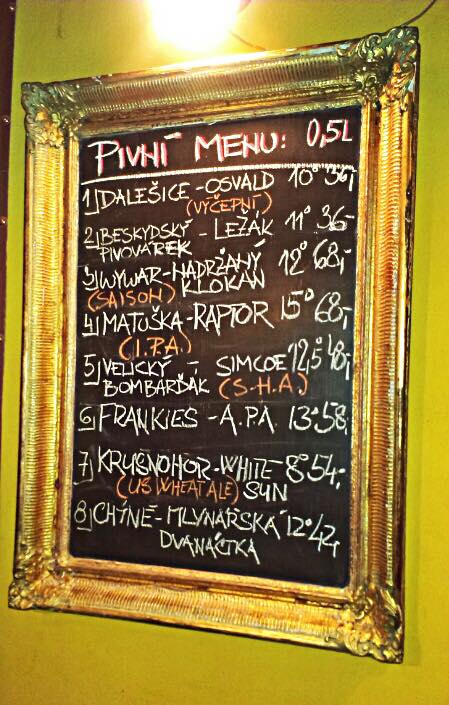 PIVNÍ MENU: 0,5L
1) DALEŠICE - OSVALD 10° 36,-
(VÝČEPNÍ)
2) BESKYDSKÝ - LEŽÁK 11° 36-
PIVOVÁREK
3) WYWAR - NADRŽANÝ 12° 68,-
(SAISON) KLOKAN
4) MATUŠKA - RAPTOR 15° 68,-
(I.P.A.)
5) VELICKÝ - SIMCOE 12,5° 48,-
BOMBARĎÁK (S.H.A.)
6) FRANKIES - A.P.A 13° 58,-
7) KRUŠNOHOR - WHITE 8° 54,-
(US WHEAT ALE) SUN
8) CHÝNĚ - MLYNÁŘSKÁ 12° 42,-
DVANÁCTKA